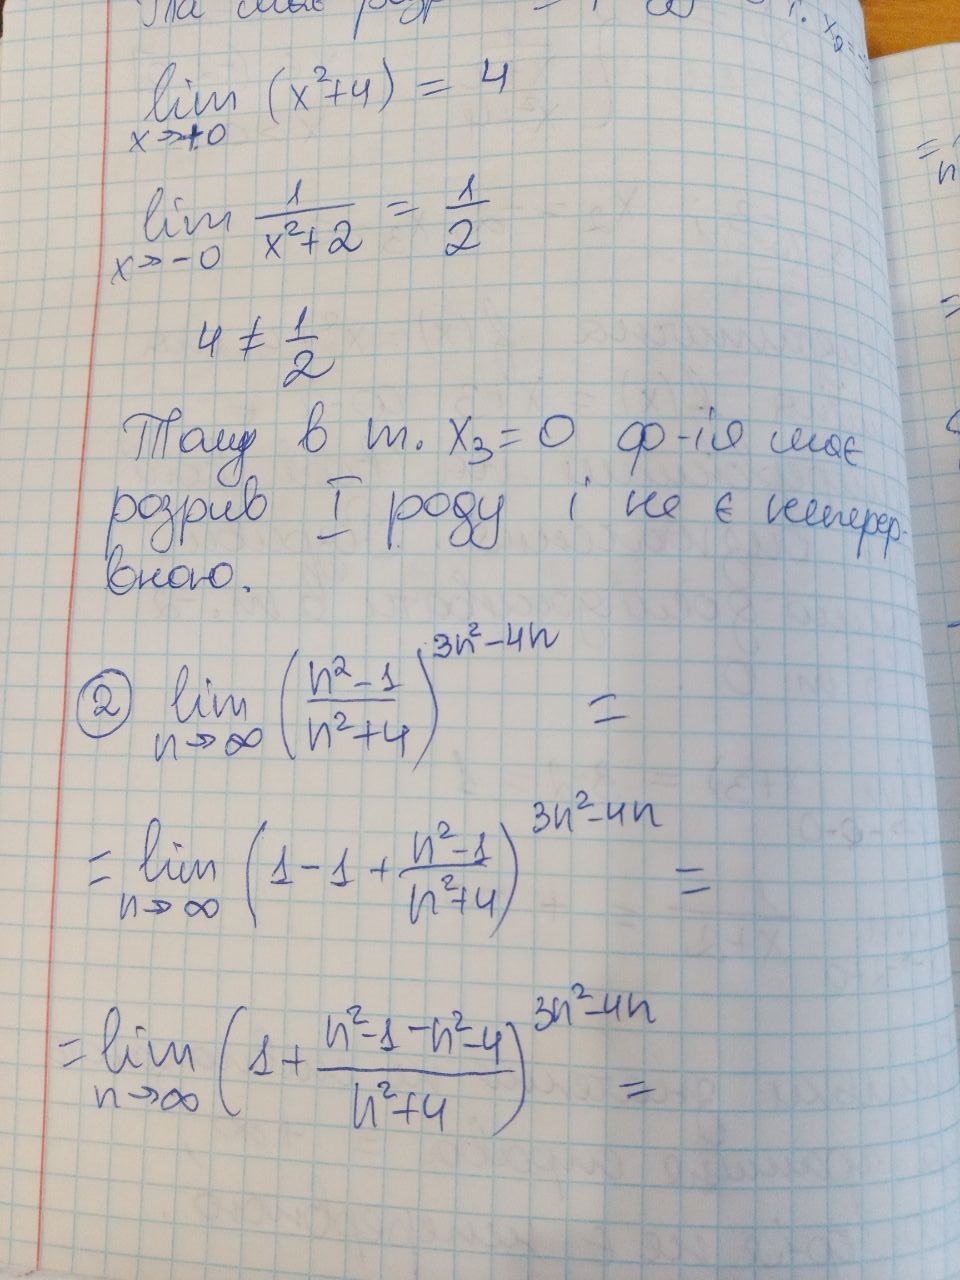 та має
lim (x²+4) = 4
x→+0
lim 1/(x²+2) = 1/2
x→-0
4 ≠ 1/2
Тому в т. x₃=0 ф-ія має
розрив I роду і не є неперер-
вною.
② lim ((n²-1)/(n²+4))^(3n²-4n) =
n→∞
= lim (1-1+(n²-1)/(n²+4))^(3n²-4n) =
n→∞
= lim (1+(n²-1-n²-4)/(n²+4))^(3n²-4n) =
n→∞